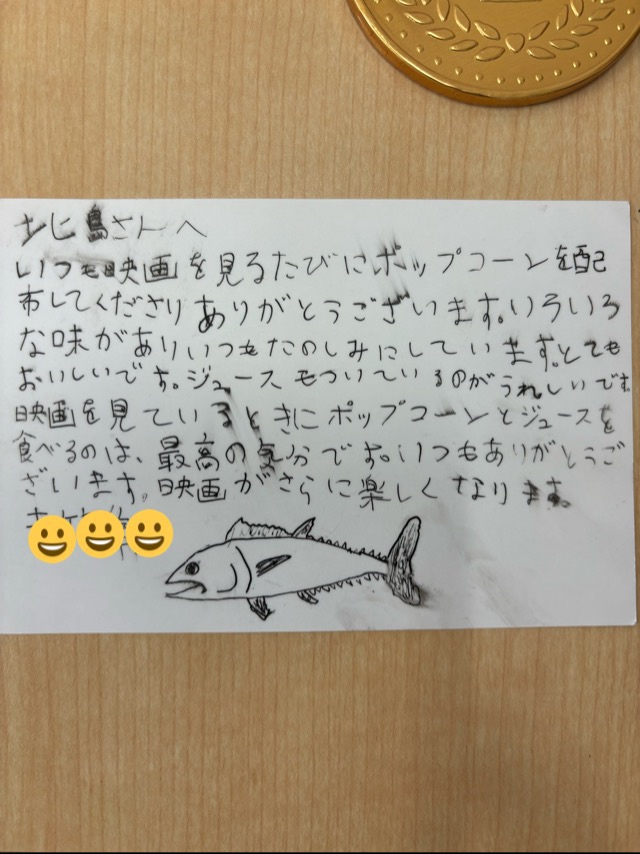 北島さんへ
いつも映画を見るたびにポップコーンを配
布してくださりありがとうございます。いろいろ
な味がありいつもたのしみにしています。とても
おいしいです。ジュースもついているのがうれしいです。
映画を見ているときにポップコーンとジュースを
食べるのは、最高の気分です。いつもありがとうご
ざいます。映画がさらに楽しくなります。